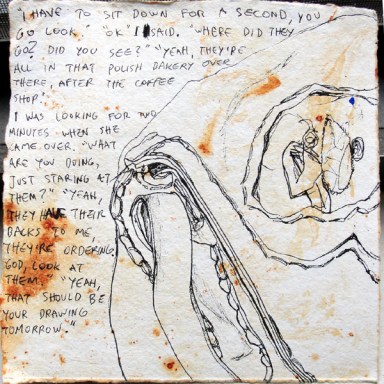 "I HAVE TO SIT DOWN FOR A SECOND, YOU
GO LOOK." "OK" I SAID. "WHERE DID THEY
GO? DID YOU SEE?" "YEAH, THEY'RE
ALL IN THAT POLISH BAKERY OVER
THERE, AFTER THE COFFEE
SHOP."
I WAS LOOKING FOR TWO
MINUTES WHEN SHE
CAME OVER. "WHAT
ARE YOU DOING,
JUST STARING AT
THEM?" "YEAH,
THEY HAVE THEIR
BACKS TO ME,
THEY'RE ORDERING.
GOD, LOOK AT
THEM." "YEAH,
THAT SHOULD BE
YOUR DRAWING
TOMORROW."